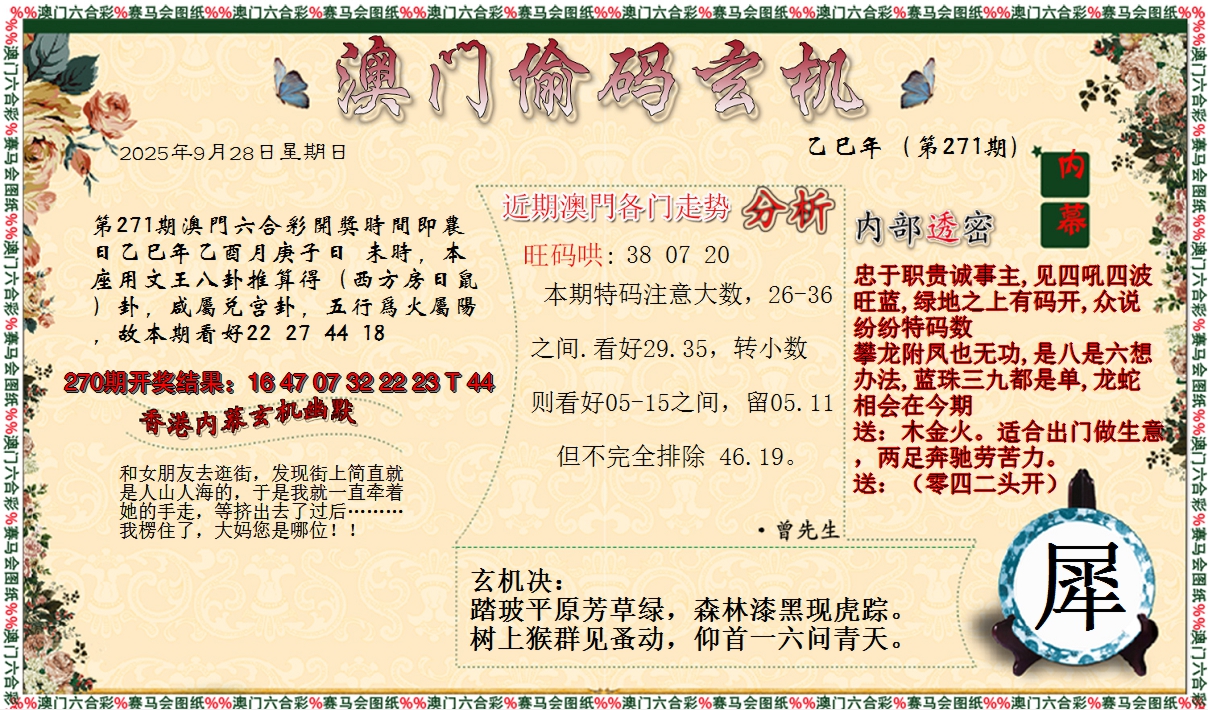 %%澳门六合彩%赛马会图纸%%澳门六合彩%赛马会图纸%%澳门六合彩%赛马会图纸%%澳门六合彩%赛马会图纸%%澳门六合彩%赛马会图纸%%澳门六合彩%赛马会图纸%%
澳门偷码玄机
2025年9月28日星期日
乙巳年（第271期）
内幕
第271期澳門六合彩開獎時間即農
日乙巳年乙酉月庚子日 未時，本
座用文王八卦推算得（西方房日鼠
）卦，咸屬兑宫卦，五行爲火屬陽
，故本期看好22 27 44 18
270期开奖结果：16 47 07 32 22 23 T 44
香港内幕玄机幽默
和女朋友去逛街，发现街上简直就
是人山人海的，于是我就一直牵着
她的手走，等挤出去了过后………
我楞住了，大妈您是哪位！！
近期澳門各门走势 分析
旺码哄: 38 07 20
本期特码注意大数，26-36
之间.看好29.35，转小数
则看好05-15之间，留05.11
但不完全排除 46.19。
·曾先生
内部透密
忠于职贵诚事主,见四吼四波
旺蓝,绿地之上有码开,众说
纷纷特码数
攀龙附凤也无功,是八是六想
办法,蓝珠三九都是单,龙蛇
相会在今期
送：木金火。适合出门做生意
，两足奔驰劳苦力。
送：（零四二头开）
玄机决：
踏玻平原芳草绿，森林漆黑现虎踪。
树上猴群见蚤动，仰首一六问青天。
犀
%%澳门六合彩%赛马会图纸%%澳门六合彩%赛马会图纸%%澳门六合彩%赛马会图纸%%澳门六合彩%赛马会图纸%%澳门六合彩%赛马会图纸%%澳门六合彩%赛马会图纸%%